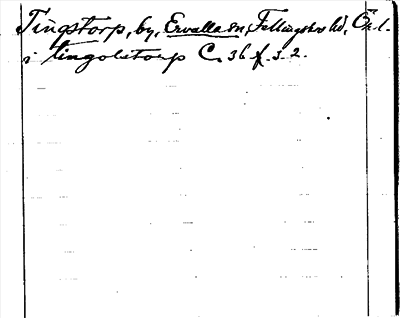 Tingstorp, by, Ervalla sn, Fellingsbro hd, Ör. l.
i tingolstorp C. 36 f. 3. 2.